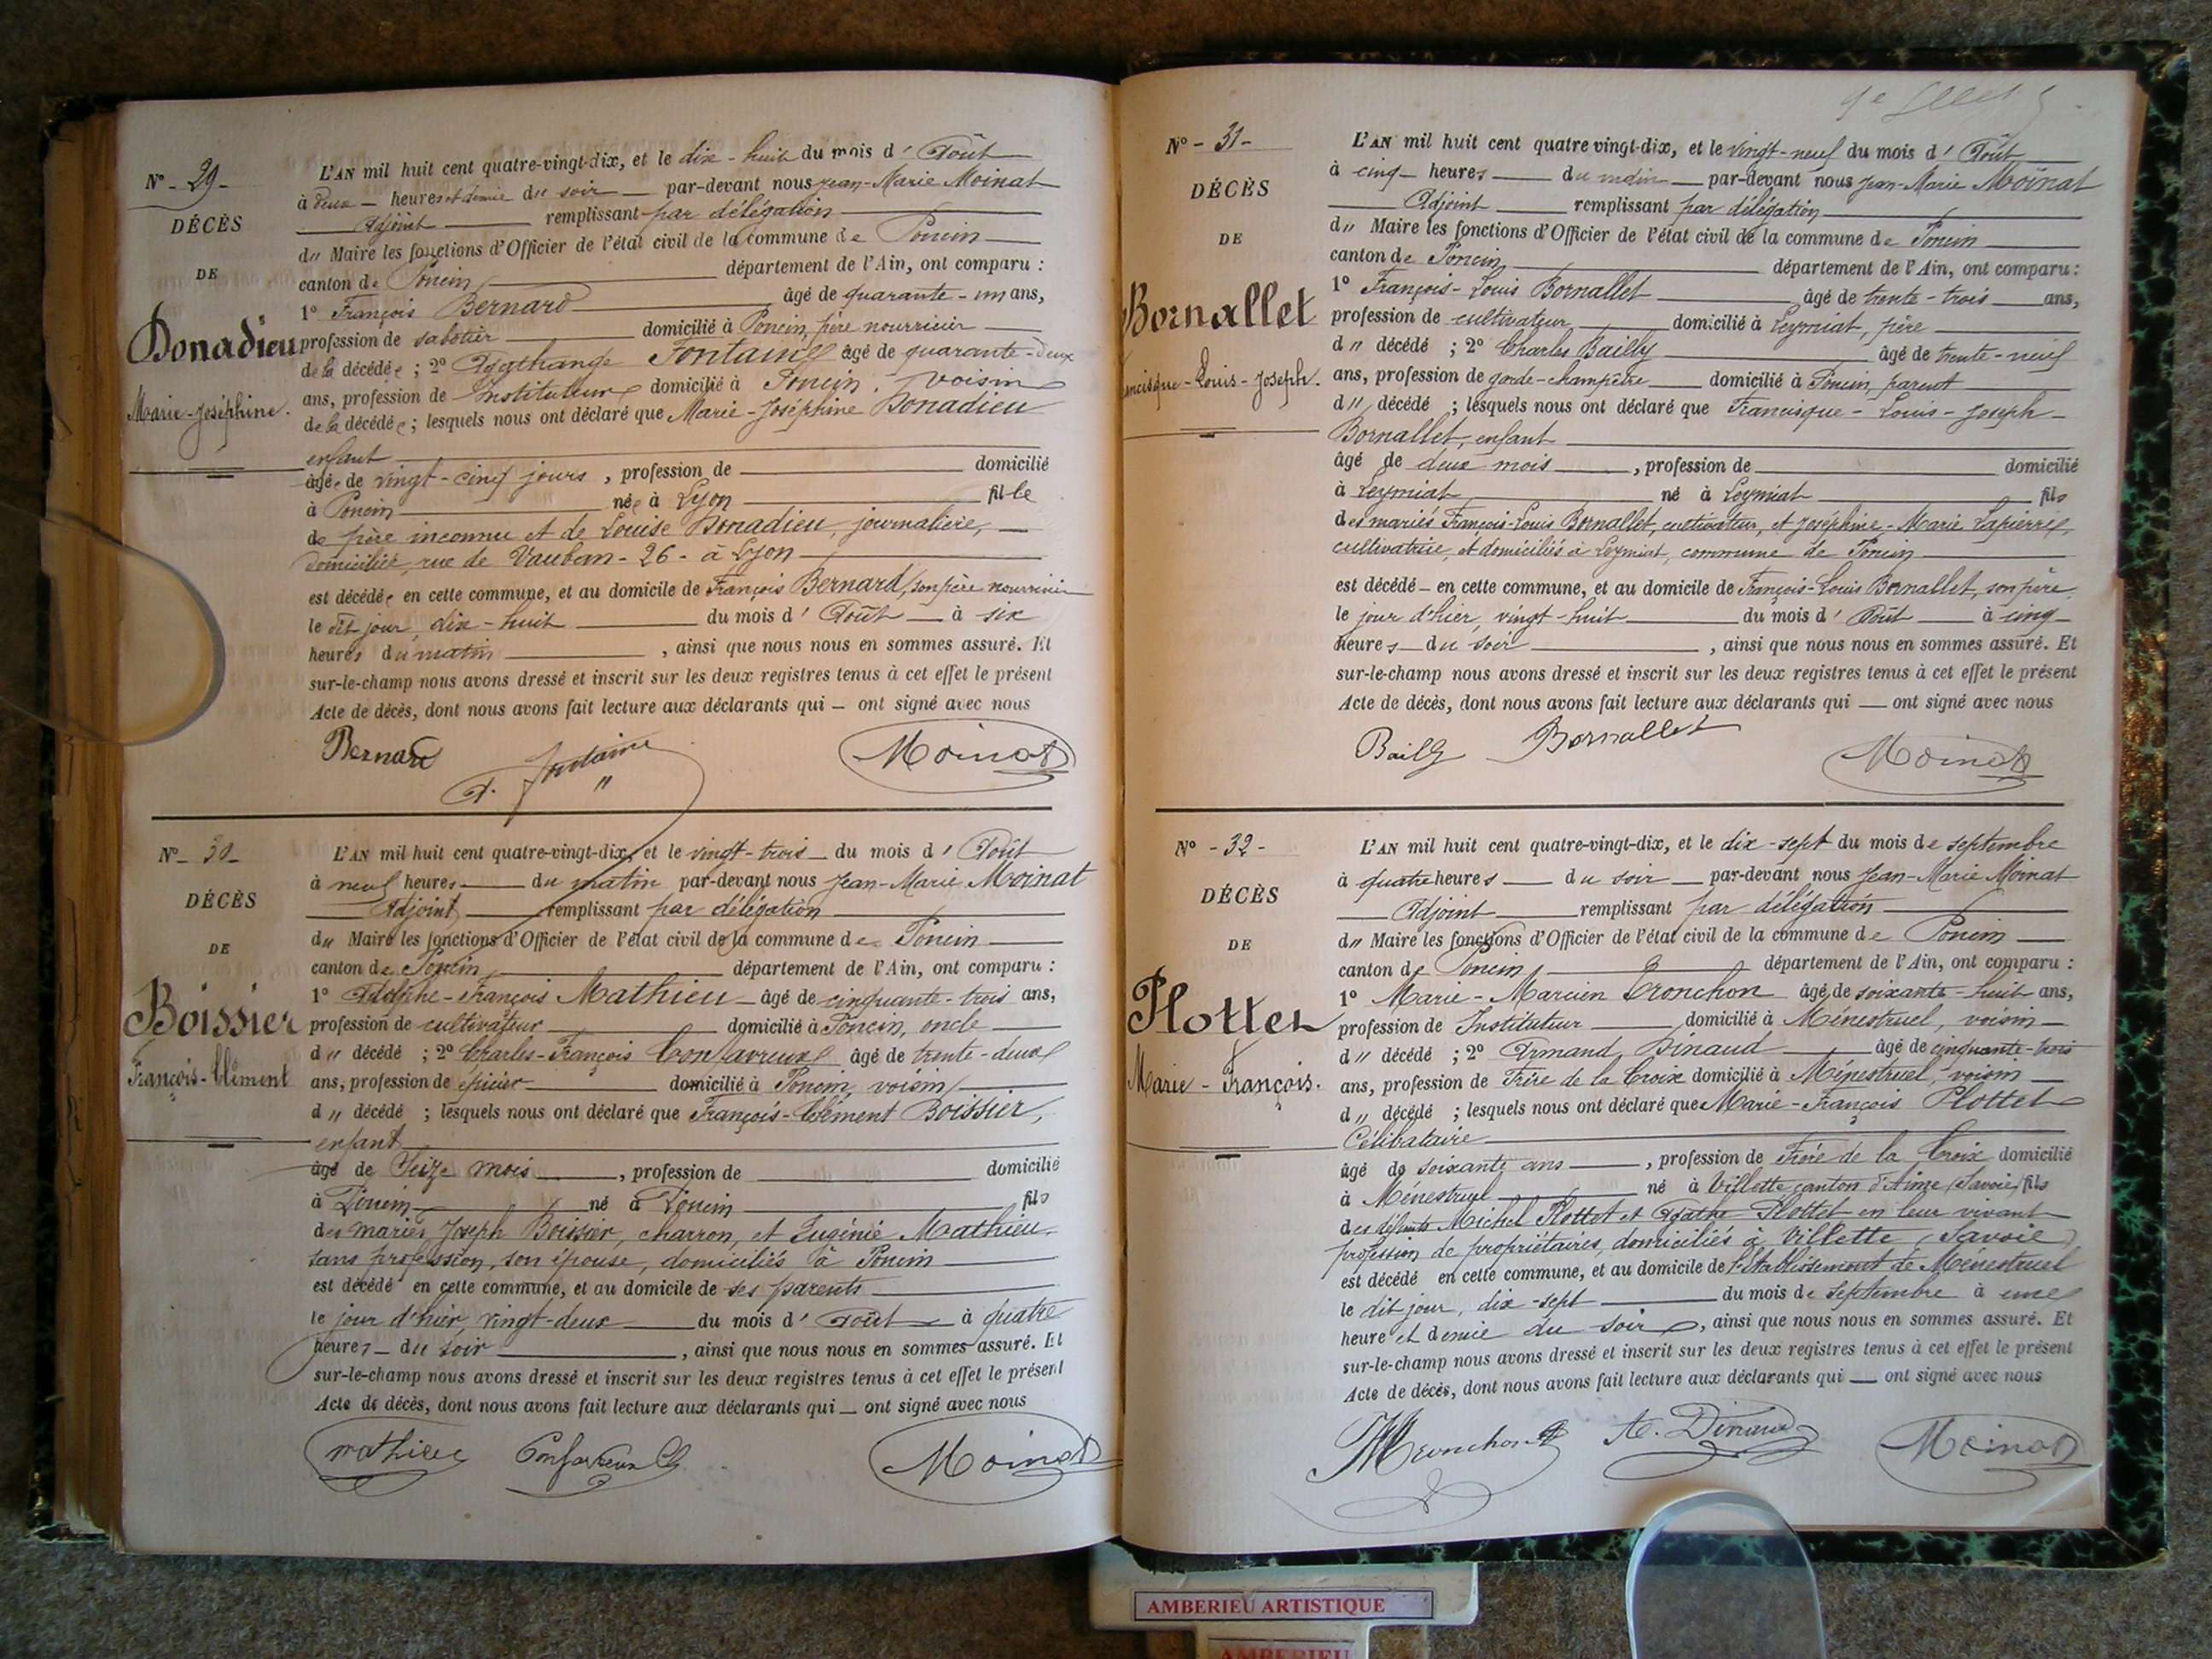 N° - 29 -
DÉCÈS
DE
Donadieu
Marie-Joséphine.
L'AN mil huit cent quatre-vingt-dix, et le dix-huit du mois d' Août
à deux heures et demie du soir par-devant nous Jean-Marie Moinat
Adjoint remplissant par délégation
du Maire les fonctions d'Officier de l'état civil de la commune de Poncin
canton de Poncin département de l'Ain, ont comparu :
1° François Bernard âgé de quarante-un ans,
profession de sabotier domicilié à Poncin, père nourricier
de la décédée ; 2° Fontaine âgé de quarante-deux
ans, profession de Instituteur domicilié à Poncin, voisin
de la décédée ; lesquels nous ont déclaré que Marie-Joséphine Donadieu
enfant
âgée de vingt-cinq jours , profession de domicilié
à Poncin née à Lyon fille
de père inconnu et de Louise Donadieu, journalière,
domiciliée, rue de Vauban - 26 - à Lyon
est décédée en cette commune, et au domicile de François Bernard, son père nourricier
le dit jour, dix-huit du mois d' Août à six
heures du matin , ainsi que nous nous en sommes assuré. Et
sur-le-champ nous avons dressé et inscrit sur les deux registres tenus à cet effet le présent
Acte de décès, dont nous avons fait lecture aux déclarants qui — ont signé avec nous
Bernard A. Fontaine Moinat
N° - 30 -
DÉCÈS
DE
Boissier
François-Clément
L'AN mil huit cent quatre-vingt-dix, et le vingt-trois du mois d' Août
à neuf heures du matin par-devant nous Jean-Marie Moinat
Adjoint remplissant par délégation
du Maire les fonctions d'Officier de l'état civil de la commune de Poncin
canton de Poncin département de l'Ain, ont comparu :
1° Adolphe-François Mathieu âgé de cinquante-trois ans,
profession de cultivateur domicilié à Poncin, oncle
d" décédé ; 2° Charles-François Confavreux âgé de trente-deux
ans, profession de épicier domicilié à Poncin, voisin
d" décédé ; lesquels nous ont déclaré que François-Clément Boissier,
enfant
âgé de seize mois , profession de domicilié
à Poncin né à Poncin fils
des mariés Joseph Boissier, charron, et Eugénie Mathieu
sans profession, son épouse, domiciliés à Poncin
est décédé en cette commune, et au domicile de ses parents
le jour d'hier, vingt-deux du mois d' Août à quatre
heures du soir , ainsi que nous nous en sommes assuré. Et
sur-le-champ nous avons dressé et inscrit sur les deux registres tenus à cet effet le présent
Acte de décès, dont nous avons fait lecture aux déclarants qui — ont signé avec nous
Mathieu Confavreux Moinat
N° - 31 -
DÉCÈS
DE
Bornallet
Francisque-Louis-Joseph.
L'AN mil huit cent quatre vingt-dix, et le vingt-neuf du mois d' Août
à cinq heures du matin par-devant nous Jean-Marie Moinat
Adjoint remplissant par délégation
du Maire les fonctions d'Officier de l'état civil de la commune de Poncin
canton de Poncin département de l'Ain, ont comparu :
1° François-Louis Bornallet âgé de trente-trois ans,
profession de cultivateur domicilié à Leymiat, père
d" décédé ; 2° Charles Bailly âgé de trente-neuf
ans, profession de garde-champêtre domicilié à Poncin, parent
d" décédé ; lesquels nous ont déclaré que Francisque-Louis-Joseph
Bornallet, enfant
âgé de deux mois , profession de domicilié
à Leymiat né à Leymiat fils
des mariés François-Louis Bornallet, cultivateur, et Joséphine-Marie Lapierre,
cultivatrice, et domiciliés à Leymiat, commune de Poncin
est décédé en cette commune, et au domicile de François-Louis Bornallet, son père,
le jour d'hier, vingt-huit du mois d' Août à cinq
heures du soir , ainsi que nous nous en sommes assuré. Et
sur-le-champ nous avons dressé et inscrit sur les deux registres tenus à cet effet le présent
Acte de décès, dont nous avons fait lecture aux déclarants qui — ont signé avec nous
Bailly Bornallet Moinat
N° - 32 -
DÉCÈS
DE
Plottet
Marie-François.
L'AN mil huit cent quatre-vingt-dix, et le dix-sept du mois de septembre
à quatre heures du soir par-devant nous Jean-Marie Moinat
Adjoint remplissant par délégation
du Maire les fonctions d'Officier de l'état civil de la commune de Poncin
canton de Poncin département de l'Ain, ont comparu :
1° Marie-Marcien Tronchon âgé de soixante-huit ans,
profession de Instituteur domicilié à Ménestruel, voisin
d" décédé ; 2° Armand Dinaud âgé de cinquante-trois
ans, profession de Frère de la Croix domicilié à Ménestruel, voisin
d" décédé ; lesquels nous ont déclaré que Marie-François Plottet
Célibataire
âgé de soixante ans , profession de Frère de la Croix domicilié
à Ménestruel né à Villette canton d'Aime (Savoie) fils
des défunts Michel Plottet et Agathe Plottet en leur vivant
profession de propriétaires, domiciliés à Villette (Savoie)
est décédé en cette commune, et au domicile de l'Etablissement de Ménestruel
le dit jour, dix-sept du mois de septembre à une
heure et demie du soir , ainsi que nous nous en sommes assuré. Et
sur-le-champ nous avons dressé et inscrit sur les deux registres tenus à cet effet le présent
Acte de décès, dont nous avons fait lecture aux déclarants qui — ont signé avec nous
Tronchon A. Dinaud Moinat
AMBERIEU ARTISTIQUE
AMBERIEU